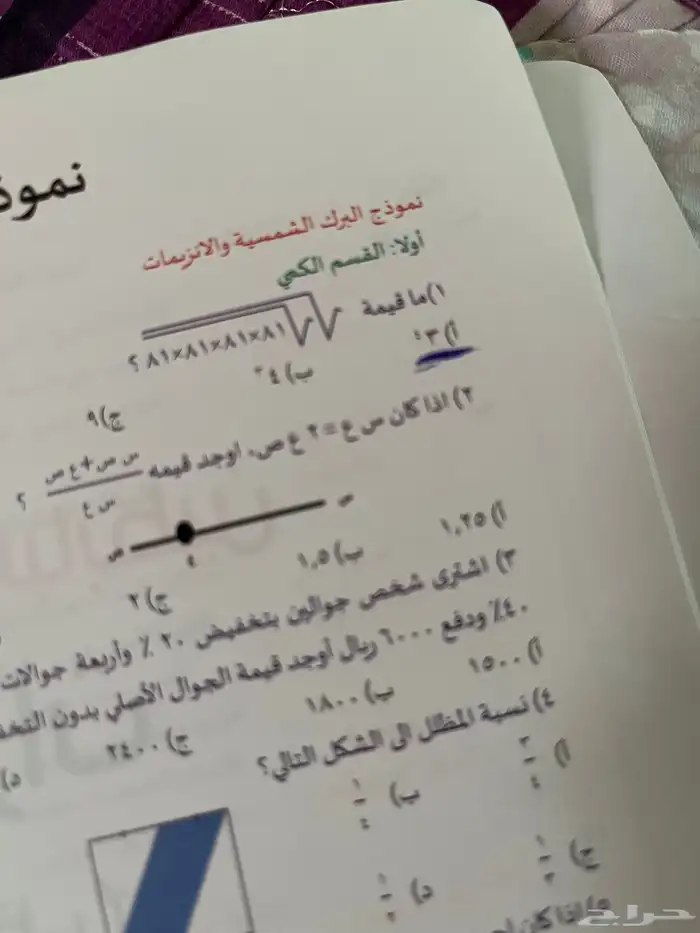 نموذ
نموذج البرك الشمسية والانزيمات
أولا: القسم الكمي
١) ما قيمة √√٨١×٨١×٨١×٨١ ؟
أ) ٣
ب) ٤
ج) ٩
٢) اذا كان س ع = ٢ ع ص، اوجد قيمه س ص + ع ص / س ع ؟
ص ع س
أ) ١,٢٥
ب) ١,٥
ج) ٢
٣) اشترى شخص جوالين بتخفيض ٢٠ ٪ وأربعة جوالات
٤٠٪ ودفع ٦٠٠٠ ريال أوجد قيمة الجوال الأصلي بدون التخف
أ) ١٥٠٠
ب) ١٨٠٠
ج) ٢٤٠٠
د)
٤) نسبة المظلل الى الشكل التالي؟
أ) ٣/٤
ب) ١/٤
ج) ١/٣
د) ١/٢
٥) اذا كان
حراج